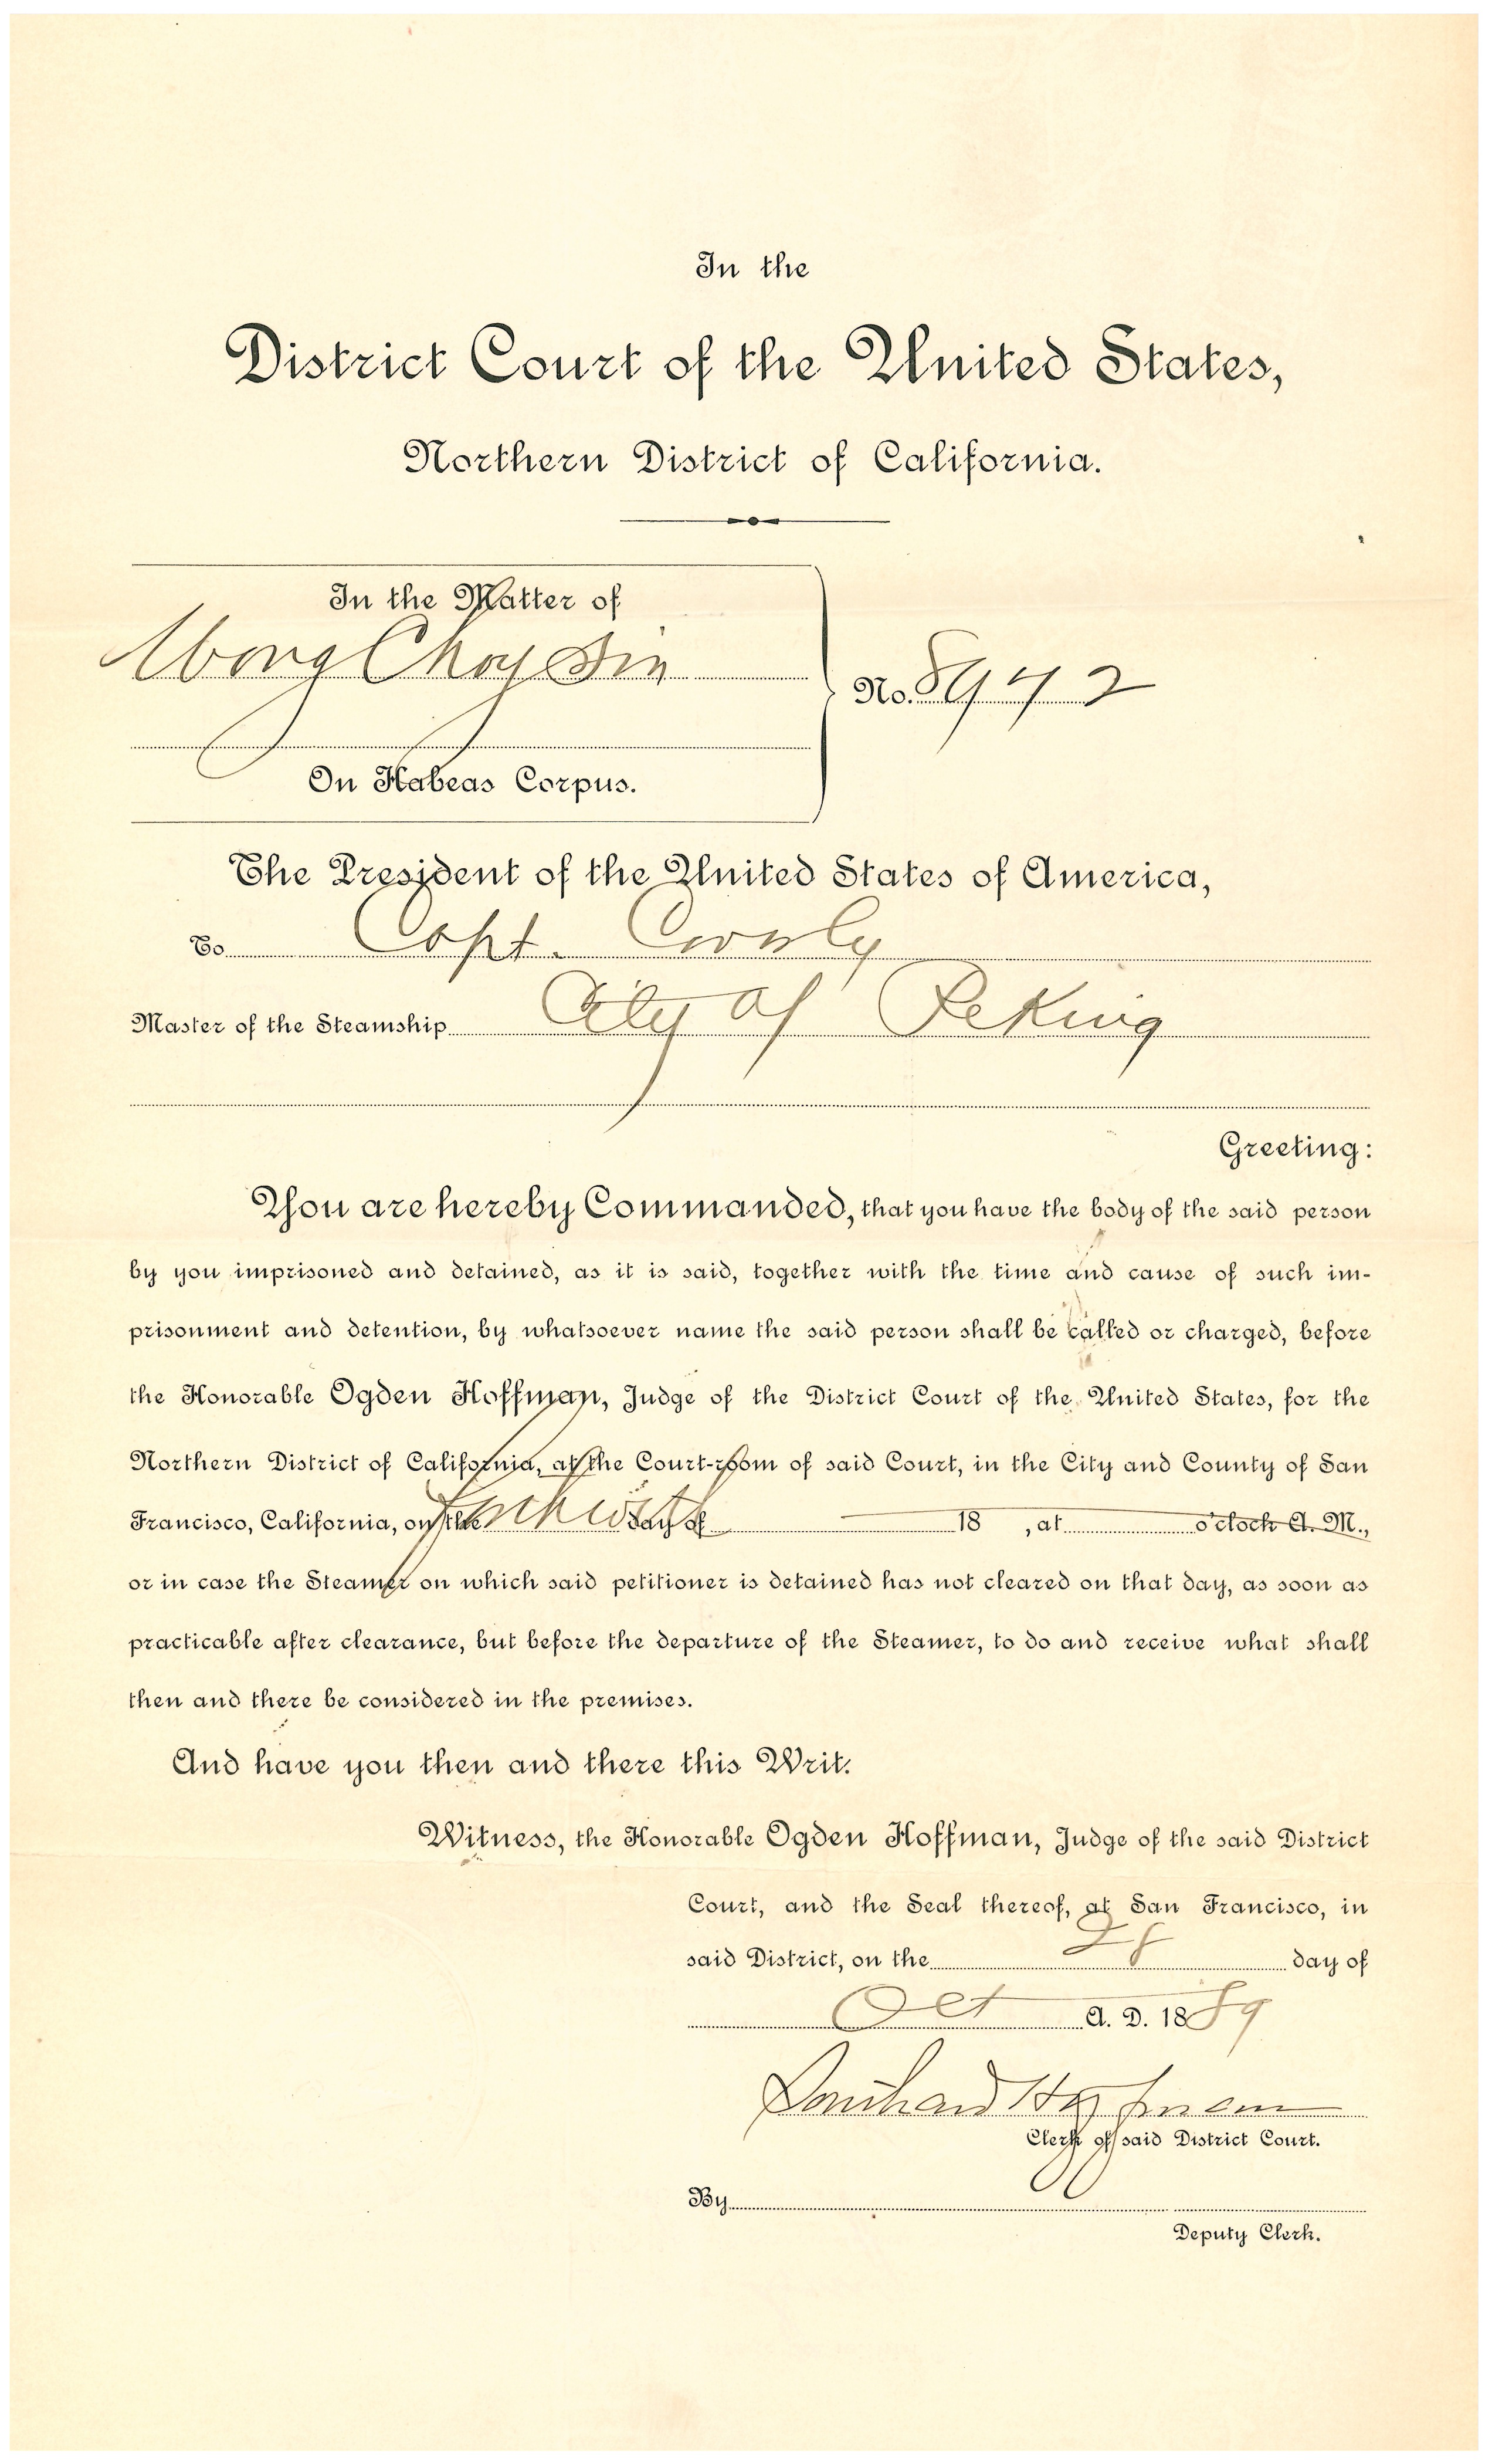 In the
District Court of the United States,
Northern District of California.
In the Matter of
Wong Choy Sin
No. 8942
On Habeas Corpus.
The President of the United States of America,
To Capt.
Master of the Steamship City of Peking
Greeting:
You are hereby Commanded, that you have the body of the said person
by you imprisoned and detained, as it is said, together with the time and cause of such im-
prisonment and detention, by whatsoever name the said person shall be called or charged, before
the Honorable Ogden Hoffman, Judge of the District Court of the United States, for the
Northern District of California, at the Court-room of said Court, in the City and County of San
Francisco, California, on the forthwith day of 18 , at o'clock A. M.,
or in case the Steamer on which said petitioner is detained has not cleared on that day, as soon as
practicable after clearance, but before the departure of the Steamer, to do and receive what shall
then and there be considered in the premises.
And have you then and there this Writ.
Witness, the Honorable Ogden Hoffman, Judge of the said District
Court, and the Seal thereof, at San Francisco, in
said District, on the 28 day of
Oct A. D. 1889
Southard Hoffman
Clerk of said District Court.
By
Deputy Clerk.